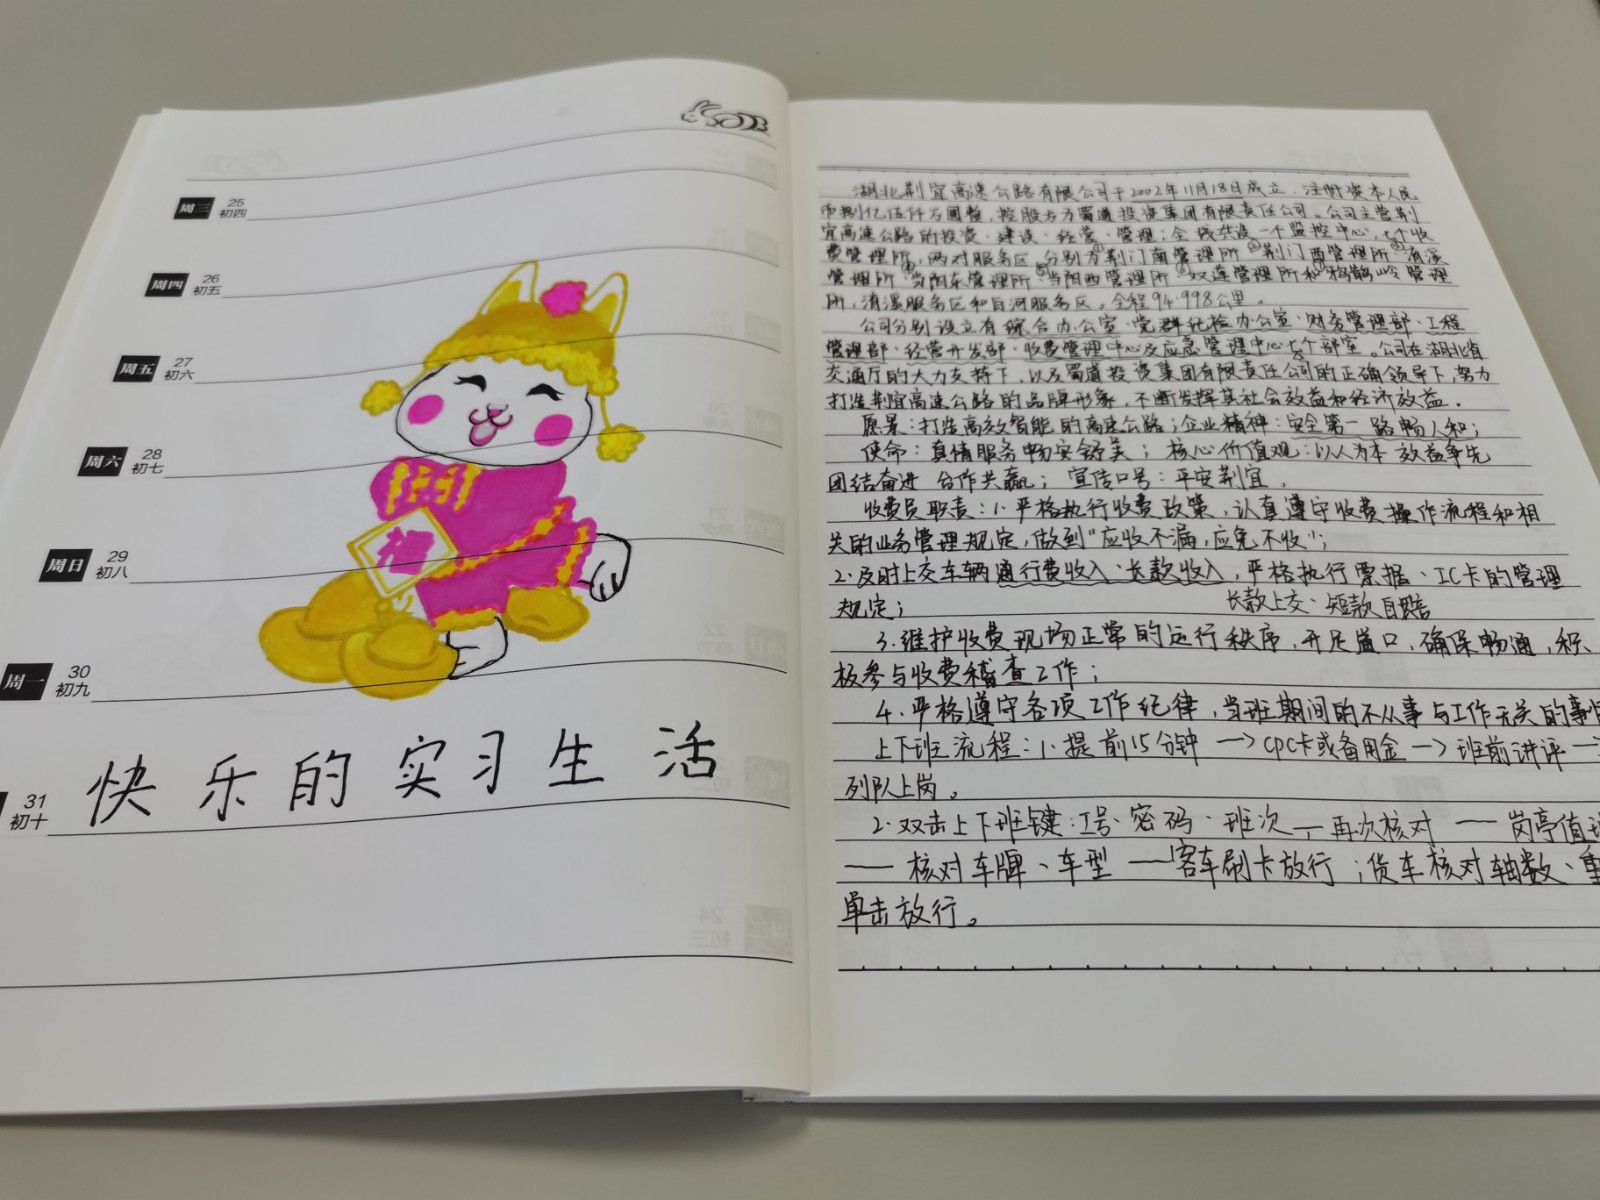 2023
周三 25 初四
周四 26 初五
周五 27 初六
周六 28 初七
周日 29 初八
福
周一 30 初九
快乐的实习生活
31 初十
湖北荆宜高速公路有限公司于2002年11月18日成立,注册资本人民
币捌亿伍仟万圆整,控股方为蜀道投资集团有限责任公司。公司主营荆
宜高速公路的投资、建设、经营、管理;全线共设一个监控中心,七个收
费管理所,两对服务区,分别为①荆门南管理所②荆门西管理所③清溪
管理所④当阳东管理所⑤当阳西管理所⑥双莲管理所和⑦鸦鹊岭管理
所,清溪服务区和白河服务区。全程94.998公里。
公司分别设立有综合办公室、党群纪检办公室、财务管理部、工程
管理部、经营开发部、收费管理中心及应急管理中心七个部室。公司在湖北省
交通厅的大力支持下,以及蜀道投资集团有限责任公司的正确领导下,努力
打造荆宜高速公路的品牌形象,不断发挥其社会效益和经济效益。
愿景:打造高效智能的高速公路;企业精神:安全第一 路畅人和;
使命:真情服务 畅安舒美;核心价值观:以人为本 效益争先
团结奋进 合作共赢;宣传口号:平安荆宜。
收费员职责:1.严格执行收费政策,认真遵守收费操作流程和相
关的业务管理规定,做到“应收不漏,应免不收”;
2.及时上交车辆通行费收入、长款收入,严格执行票据、IC卡的管理
规定; 长款上交、短款自赔
3.维护收费现场正常的运行秩序,开足道口,确保畅通,积
极参与收费稽查工作;
4.严格遵守各项工作纪律,当班期间的不从事与工作无关的事情
上下班流程:1.提前15分钟→CPC卡或备用金→班前讲评→
列队上岗。
2.双击上下班键:工号、密码、班次—再次核对——岗亭值班
——核对车牌、车型——客车刷卡放行;货车核对轴数、重
单击放行。